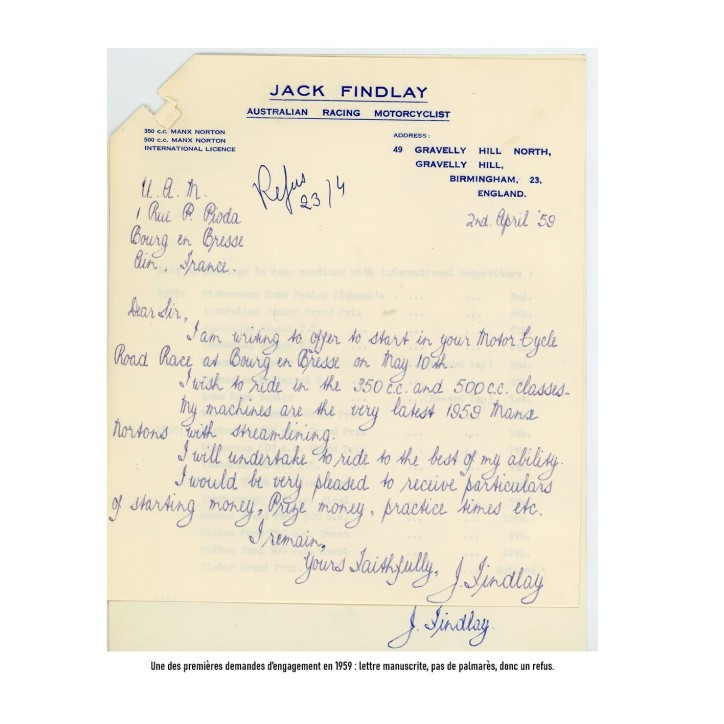 JACK FINDLAY
AUSTRALIAN RACING MOTORCYCLIST
350 c.c. MANX NORTON
500 c.c. MANX NORTON
INTERNATIONAL LICENCE
ADDRESS:
49 GRAVELLY HILL NORTH,
GRAVELLY HILL,
BIRMINGHAM, 23,
ENGLAND.
Refus
23/4
2nd. April '59
U. A. M.
1 Rue P. Pioda
Bourg en Bresse
Ain, France.
Dear Sir,
I am writing to offer to start in your Motor Cycle
Road Race at Bourg en Bresse on May 10th.
I wish to ride in the 350 c.c. and 500 c.c. classes.
My machines are the very latest 1959 Manx
Nortons with streamlining.
I will undertake to ride to the best of my ability.
I would be very pleased to receive particulars
of starting money, Prize money, practice times etc.
I remain,
Yours Faithfully, J. Findlay
J. Findlay.
Une des premières demandes d'engagement en 1959 : lettre manuscrite, pas de palmarès, donc un refus.